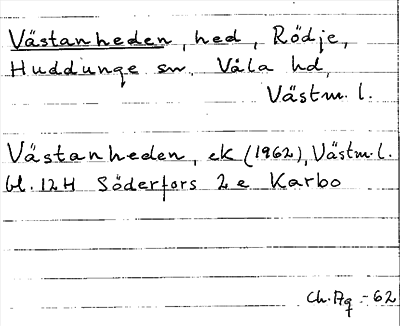 Västanheden, hed, Rödje,
Huddunge sn. Våla hd,
Västm. l.
Västanheden, ek (1962), Västm. l.
bl. 12H Söderfors 2e Karbo
Ch. Ag -62